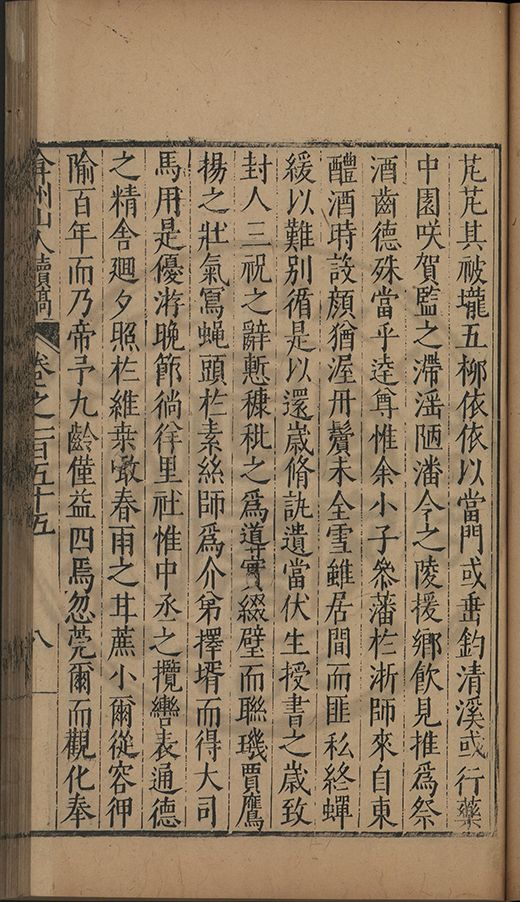 芃芃其被壠五柳依依以當門或垂釣清溪或行藥
中園咲賀監之滯滛陋潘令之陵援鄉飲見推爲祭
酒齒德殊當乎逵尊惟余小子叅藩於浙師來自東
醴酒時設顔猶渥丹鬢未全雪雖居間而匪私終蟬
緩以難別循是以還歲脩訊遺當伏生授書之歲致
封人三祝之辭慙穅秕之爲道蕚綴璧而聯璣賈鷹
揚之壯氣寫蝇頭於素絲師爲介弟擇壻而得大司
馬用是優游晚節徜徉里社惟中丞之攬轡表通德
之精舍廻夕照於維桒噉春雨之甘蔗小爾從容卬
隃百年而乃帝予九齡僅益四焉忽莞爾而觀化奉
弇州山人續稿 卷之一百五十五 八